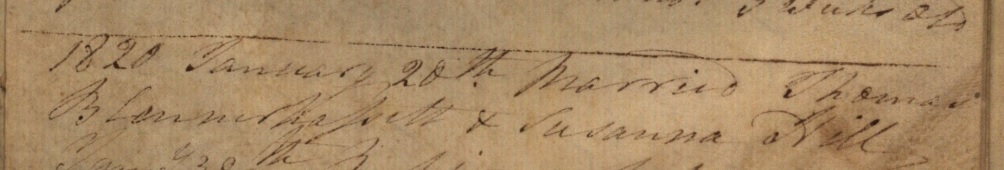 3 Weeks old
1820 January 20th Married Thomas
Blennerhassett & Susanna Hill